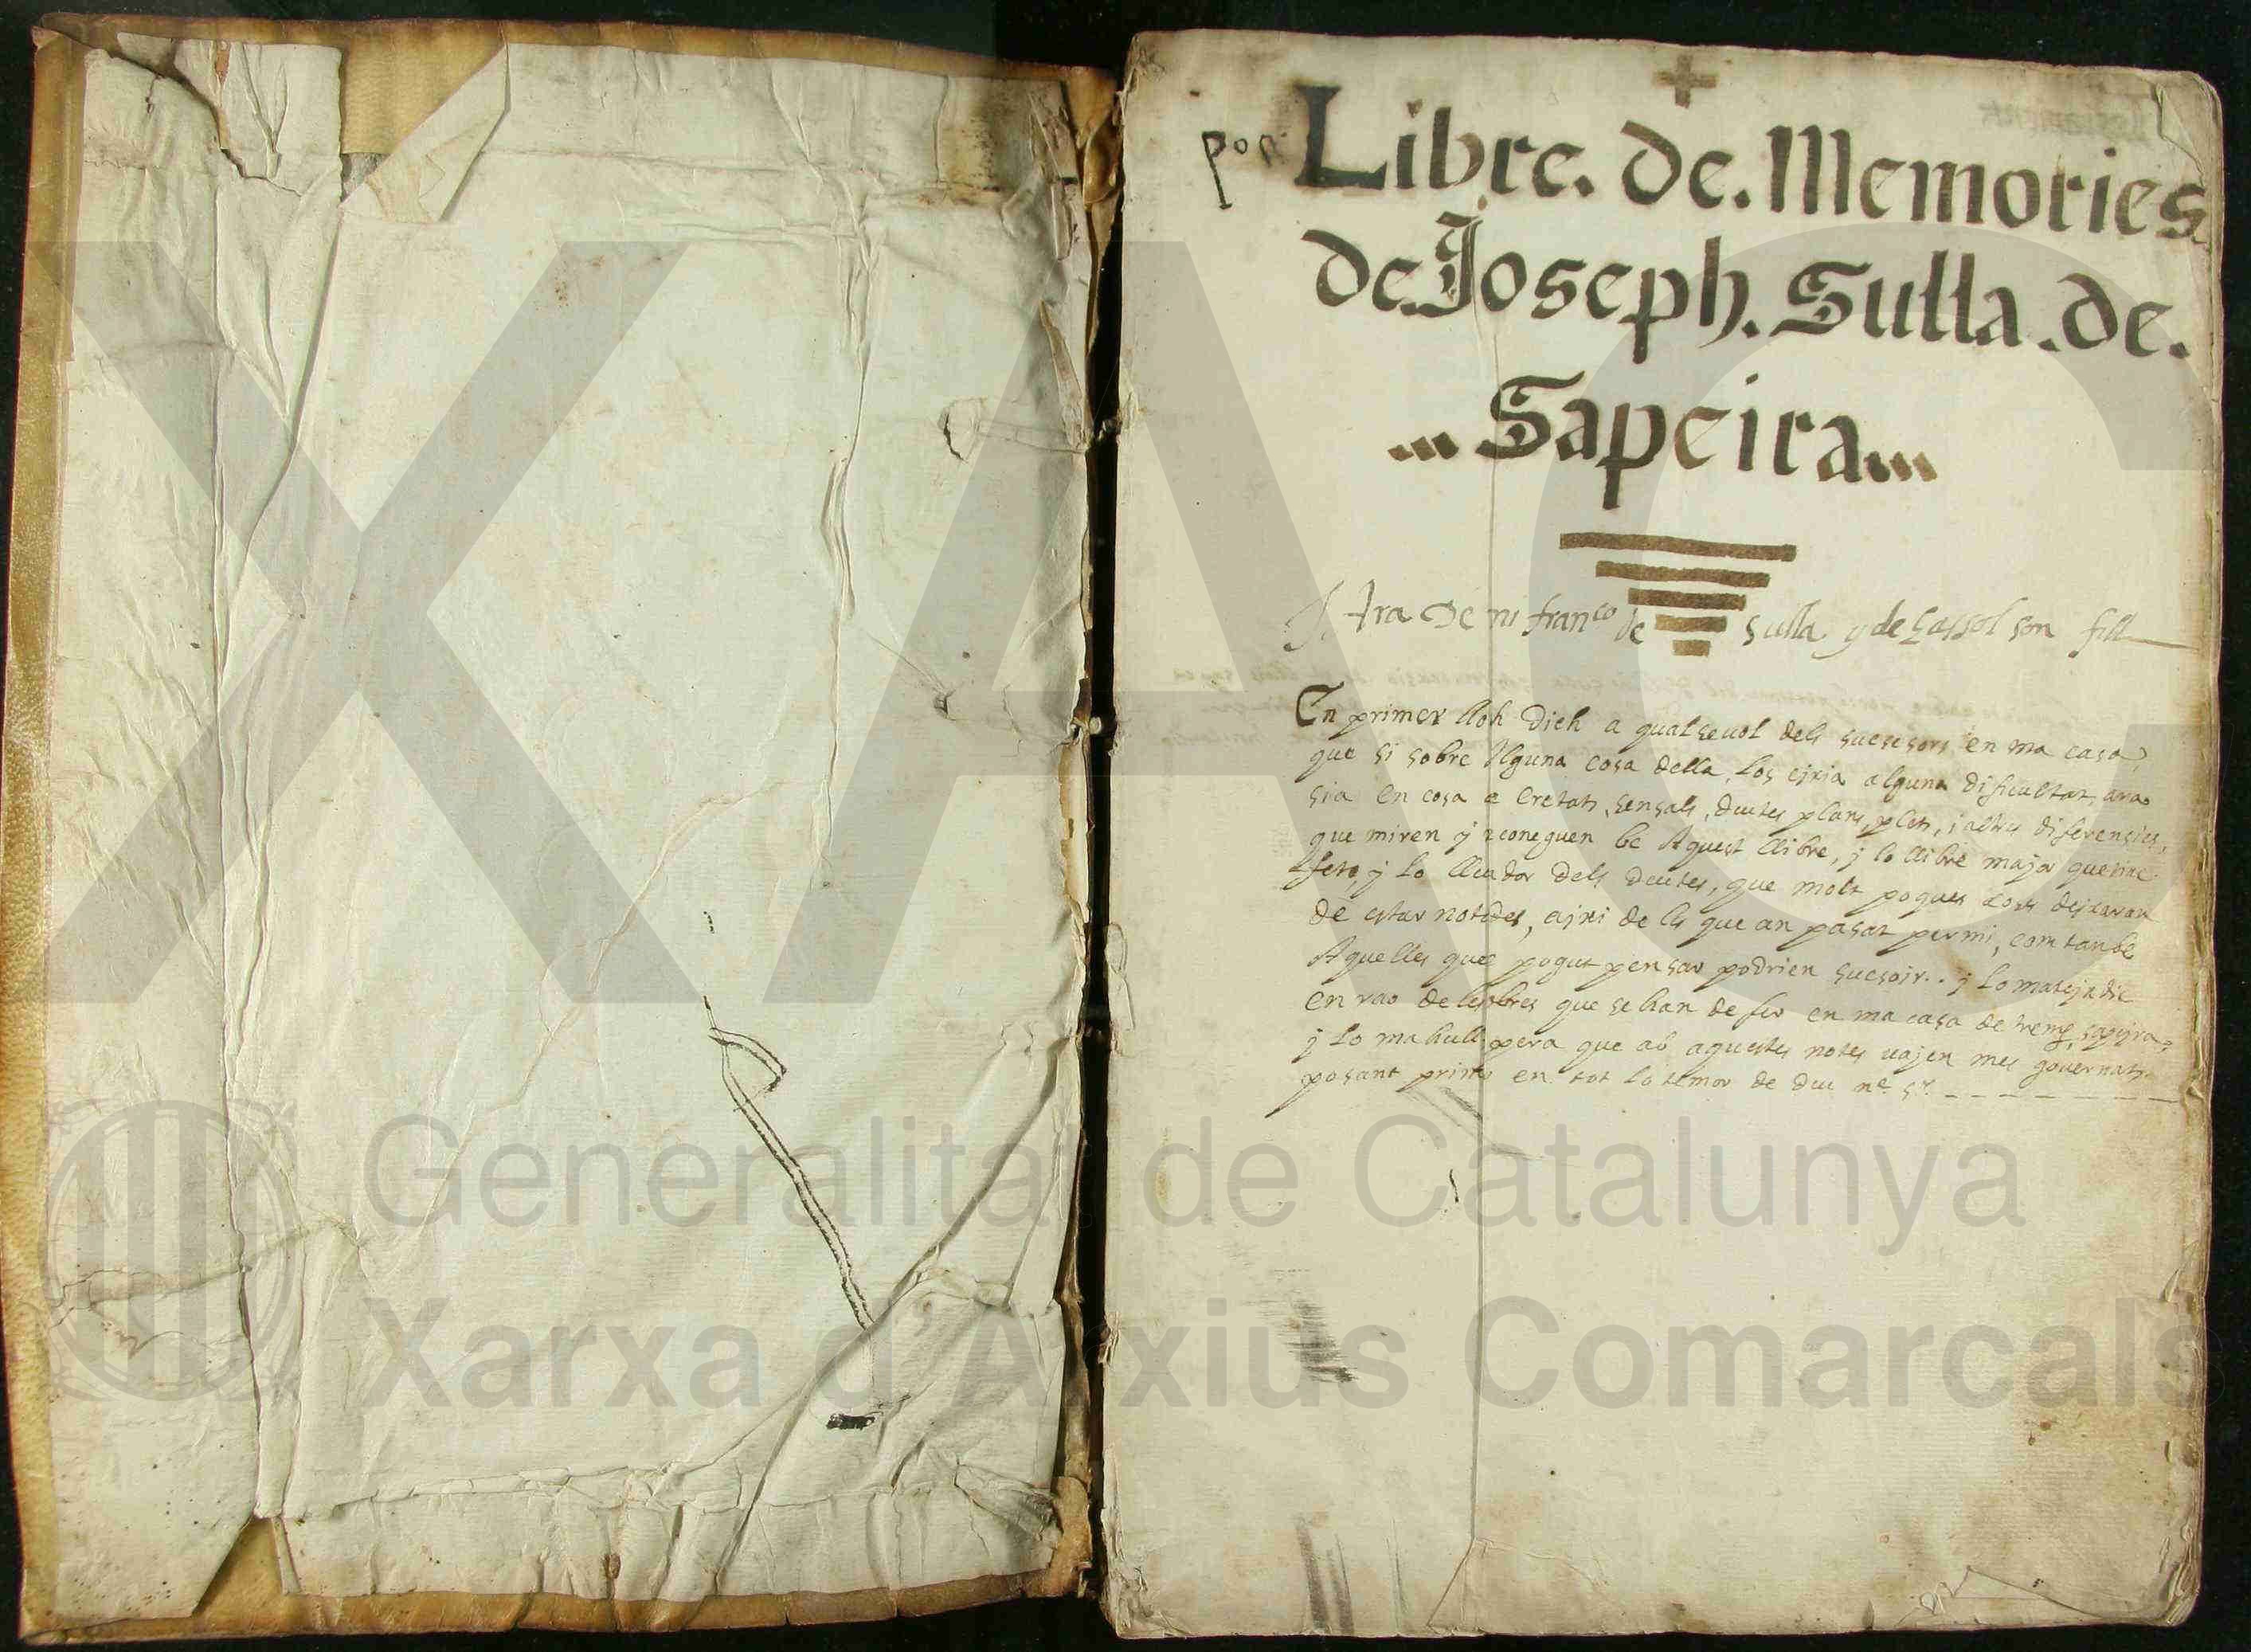 Libre. de. Memories
de Joseph. Sulla. de.
Sapeira
tra de mi franco de Sulla y de son fill
En primer lloh dich a qualsevol dels sucesors en ma casa,
que si sobre Alguna cosa della, los ejxia alguna dificultat, ara
sia en cosa e eretats, sensals, deutes plans, plets, i altres diferensies,
que miren y reconeguen be Aquest llibre, y lo llibre major que tinc
fet, y lo lleudor dels deutes, que molt poques coses dejxaran
de estar notades, ajxi de les que an pasat per mi, com tanbe
Aquelles que pogut pensar podrien sucsoir.. y lo matejx dic
en rao de les obres que se han de fer en ma casa de tremp, sapejra,
y lo mahull pera que ab aquestes notes vajen mes governats
posant primer en tot lo temor de Deu ne. Sr.
XAC
Generalitat de Catalunya
Xarxa d'Arxius Comarcals